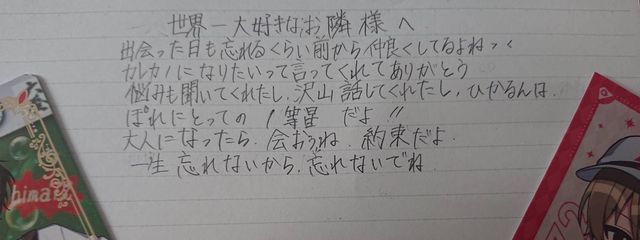 世界一大好きなお隣様へ
出会った日も忘れるくらい前から仲良くしてるよねっ
カレカノになりたいって言ってくれてありがとう
悩みも聞いてくれたし、沢山話してくれたし、ひかるんは、
ぽれにとっての1等星だよ〃
大人になったら、会おうね、約束だよ、
一生忘れないから、忘れないでね、
hima
72